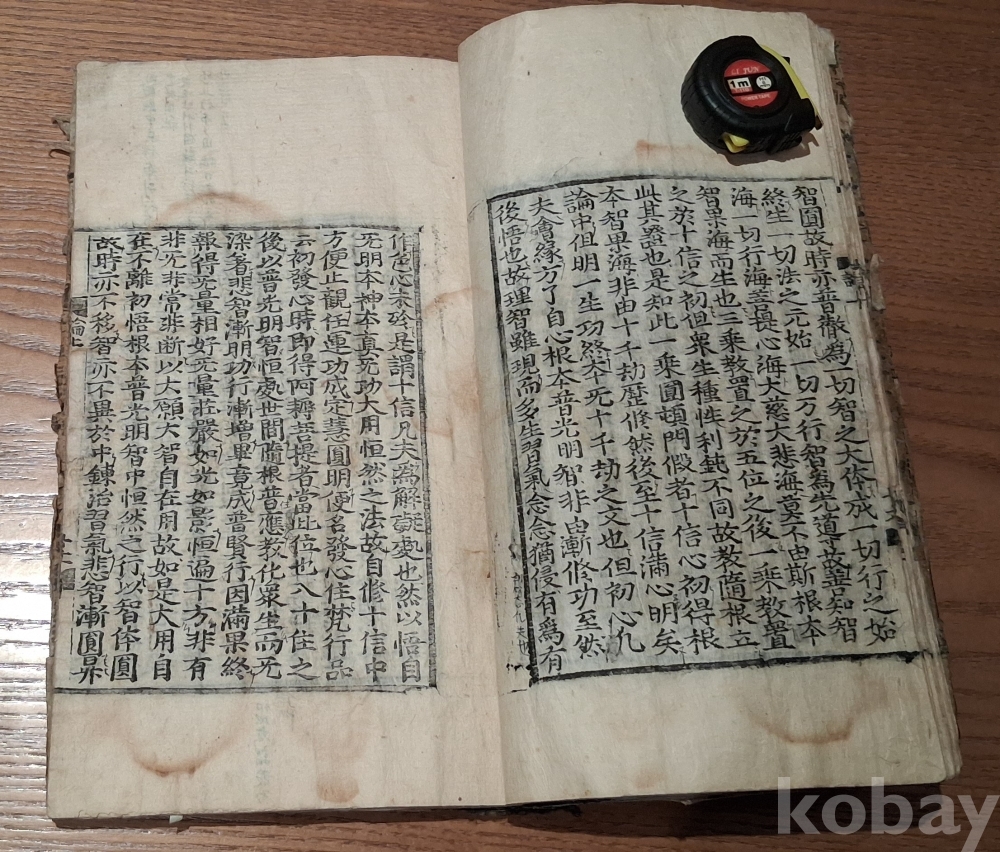 智圓故時亦普徹爲一切智之大体成一切行之始
終生一切法之元始一切万行智爲先道故善知智
海一切行海善畏心海大慈大悲海莫不由斯根本
智果海而生也三乘教置之於五位之後一乘教置
之於十信之初但衆生種性利鈍不同故教隨根立
此其證也是知此一乘圓頓門假者十信心初得根
本智果海非由十千劫歷修然後至十信滿心明矣
論中但明一生功終本无十千劫之文也但初心凡
夫會緣方了自心根本普光明智非由漸修功至然
後悟也故理智雖現而多生習氣念念猶侵有爲有
作色心未殄是謂十信凡夫爲解碍處也然以悟自
无明本神本眞无功大用恒然之法故自修十信中
方便止觀任運功成定慧圓明便名發心住梵行品
云初發心時即得阿耨菩提者當此位也入十住之
後以普光明智恒處世間隨根普應教化衆生而无
染著悲智漸明功行漸增畢竟成普賢行因滿果終
報得无量相好无量莊嚴如光如影恒遍十方非有
非无非常非斷以大願大智自在用故如是大用自
在不離初悟根本普光明智中恒然之行以智体圓
故時亦不移智亦不異於中鍊治習氣悲智漸圓昇
論上
1m
kobay